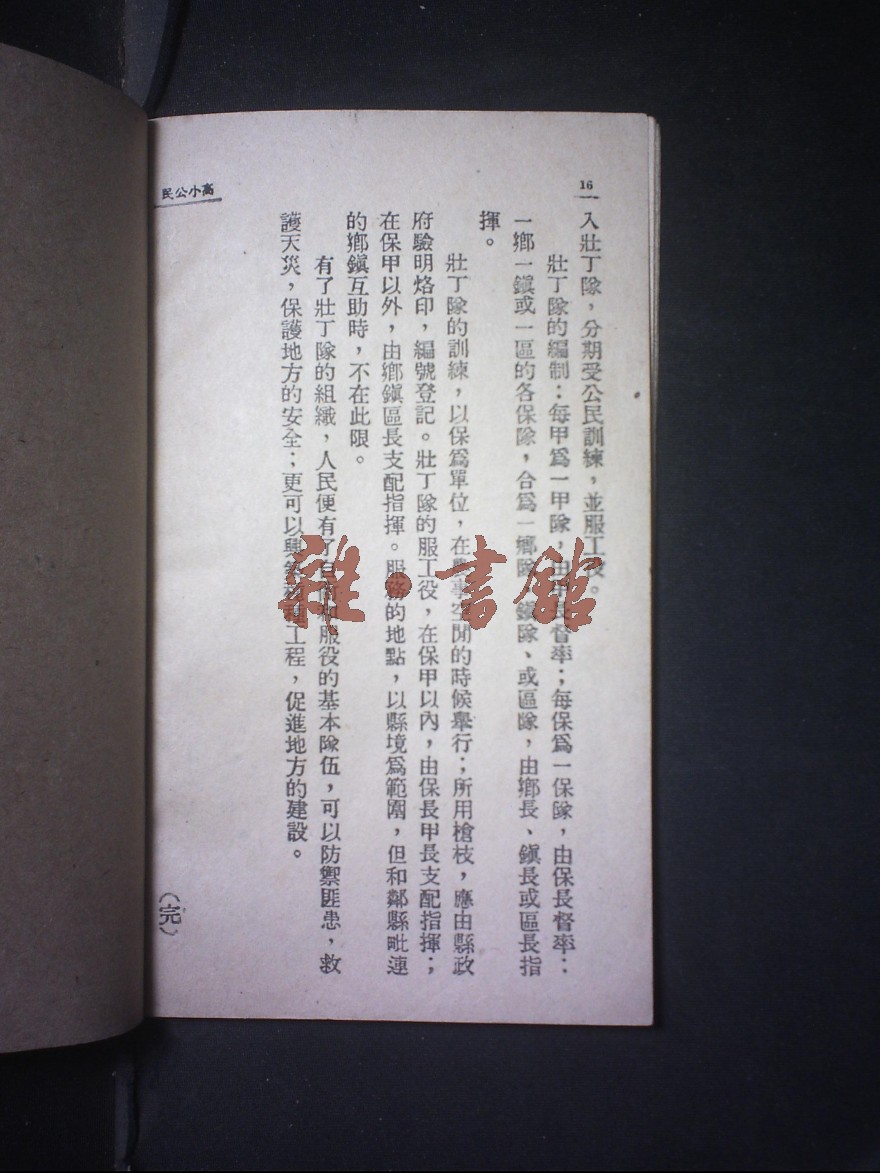 16
高小公民
入壯丁隊，分期受公民訓練，並服工役。
壯丁隊的編制：每甲爲一甲隊，由甲長督率；每保爲一保隊，由保長督率：
一鄉一鎭或一區的各保隊，合爲一鄉隊、鎭隊、或區隊，由鄉長、鎭長或區長指
揮。
壯丁隊的訓練，以保爲單位，在農事空閒的時候舉行；所用槍枝，應由縣政
府驗明烙印，編號登記。壯丁隊的服工役，在保甲以內，由保長甲長支配指揮；
在保甲以外，由鄉鎭區長支配指揮。服務的地點，以縣境爲範圍，但和鄰縣毗連
的鄉鎭互助時，不在此限。
有了壯丁隊的組織，人民便有了自衞和服役的基本隊伍，可以防禦匪患，救
護天災，保護地方的安全；更可以興工程，促進地方的建設。
（完）
雜·書館